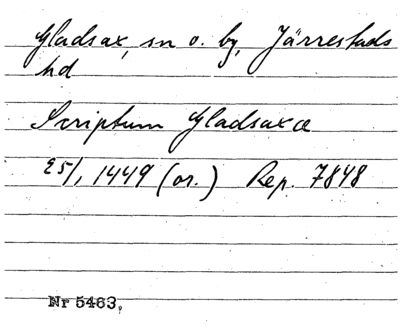 Gladsax, sn o. by, Järrestads
hd
Scriptum Gladsaxæ
25/1 1449 (or.) Rep. 7848
Nr 5463.